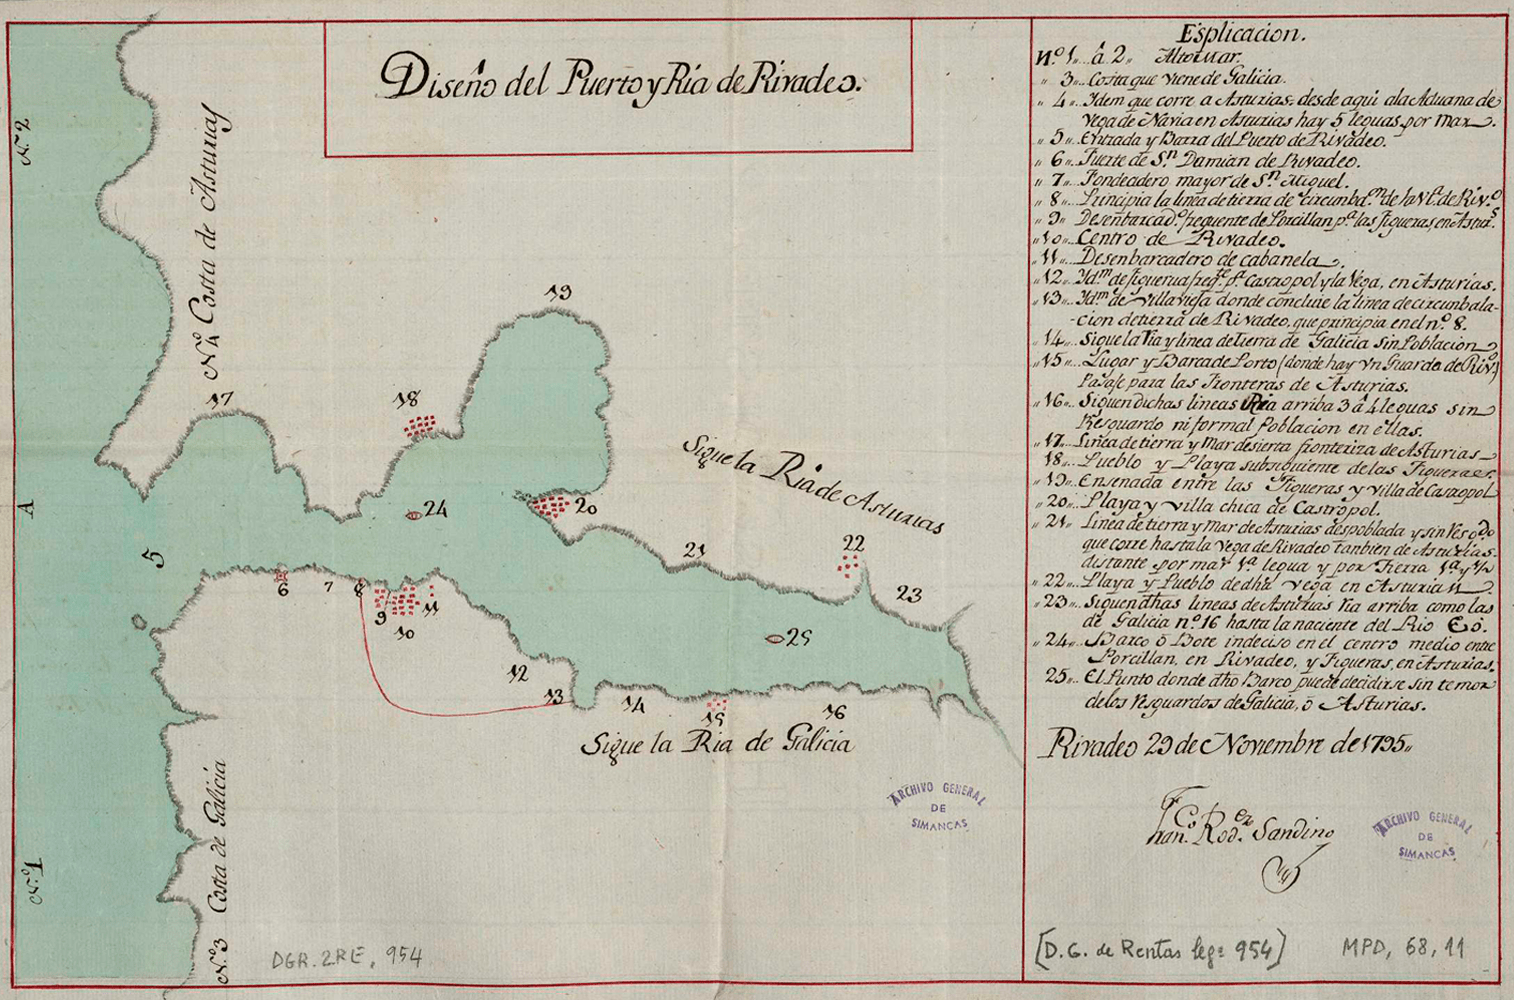 Diseño del Puerto y Ría de Rivadeo.
N.º 2
Nº 4 Costa de Asturias
17
18
19
20
Sigue la Ria de Asturias
21
22
23
24
25
A
5
6
7
8
9
10
11
12
13
14
15
16
Sigue la Ria de Galicia
N.º 1
N.º 3 Costa de Galicia
ARCHIVO GENERAL
DE
SIMANCAS
DGR. 2RE, 954
Esplicacion.
N.º 1,, â 2,, Alto Mar.
,, 3,,.. Costa que viene de Galicia.
,, 4,,.. Ydem que corre a Asturias: desde aqui ala Aduana de
Vega de Navia en Asturias hay 5 leguas por mar.
,, 5,,.. Entrada y Barra del Puerto de Rivadeo.
,, 6,,.. Fuerte de Sn. Damian de Rivadeo.
,, 7,,.. Fondeadero mayor de Sn. Miguel.
,, 8,,.. Principia la linea de tierra de circunbdon. de la Va. de Rivo.
,, 9,,.. Desenbarcado. frequente de Porcillan pa. las Figueras, en Asturs.
,, 10,,.. Centro de Rivadeo.
,, 11,,.. Desenbarcadero de cabanela.
,, 12,,.. Ydm. de figuerua freqte. pa. Castropol y la Vega, en Asturias.
,, 13,,.. Ydm. de villavieja donde concluie la linea de circunbala-
-cion de tierra de Rivadeo, que principia en el nº. 8.
,, 14,,.. Sigue la ria y linea de tierra de Galicia sin Poblacion
,, 15,,.. Lugar y Barca de Porto (donde hay vn Guarda de Rivo.)
Pasaje para las Fronteras de Asturias.
,, 16,,.. Siguen dichas lineas Ria arriba 3 â 4 leguas sin
Resguardo ni formal Poblacion en ellas.
,, 17,,.. Linea de tierra y Mar desierta fronteriza de Asturias
18,,.. Pueblo y Playa subsiguiente de las Figueras.
,, 19,,.. Ensenada entre las Figueras y villa de Castropol
,, 20,,.. Playa y villa chica de Castropol.
,, 21,, Linea de tierra y Mar de Asturias despoblada y sin Resgdo
que corre hasta la Vega de Rivadeo tanbien de Asturias.
distante por mar 1ª legua y por tierra 1ª y ½
,, 22,,.. Playa y Pueblo de dha Vega en Asturias
,, 23,,.. Siguen dhas lineas de Asturias ria arriba como las
de Galicia nº. 16 hasta la naciente del Rio Eô.
,, 24,,.. Barco ô Bote indeciso en el centro medio entre
Porcillan, en Rivadeo, y Figueras, en Asturias.
25,,.. El Punto donde dho Barco puede decidirse sin temor
de los resguardos de Galicia, ô Asturias.
Rivadeo 29 de Noviembre de 1795,,
Franco. Rodez. Sandino
ARCHIVO GENERAL
DE
SIMANCAS
[D.G. de Rentas legº 954]
MPD, 68, 11